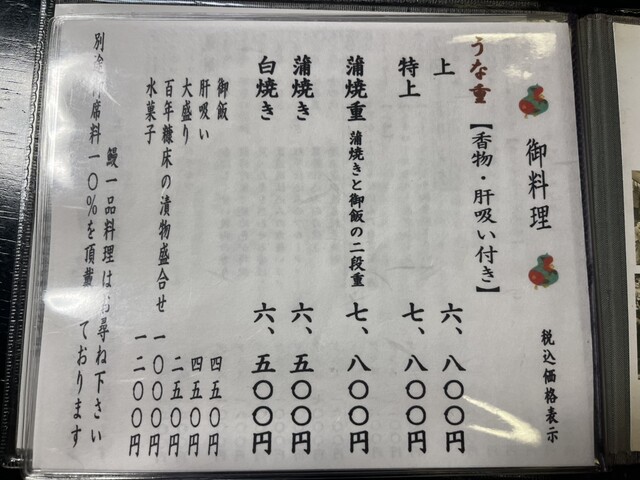 御料理
税込価格表示
うな重【香物・肝吸い付き】
上 六、八〇〇円
特上 七、八〇〇円
蒲焼重 蒲焼きと御飯の二段重 七、八〇〇円
蒲焼き 六、五〇〇円
白焼き 六、五〇〇円
御飯 四五〇円
肝吸い 四五〇円
大盛り 二五〇円
百年糠床の漬物盛合せ 一〇〇〇円
水菓子 一二〇〇円
鰻一品料理はお尋ね下さい
別途 席料一〇%を頂戴 ております